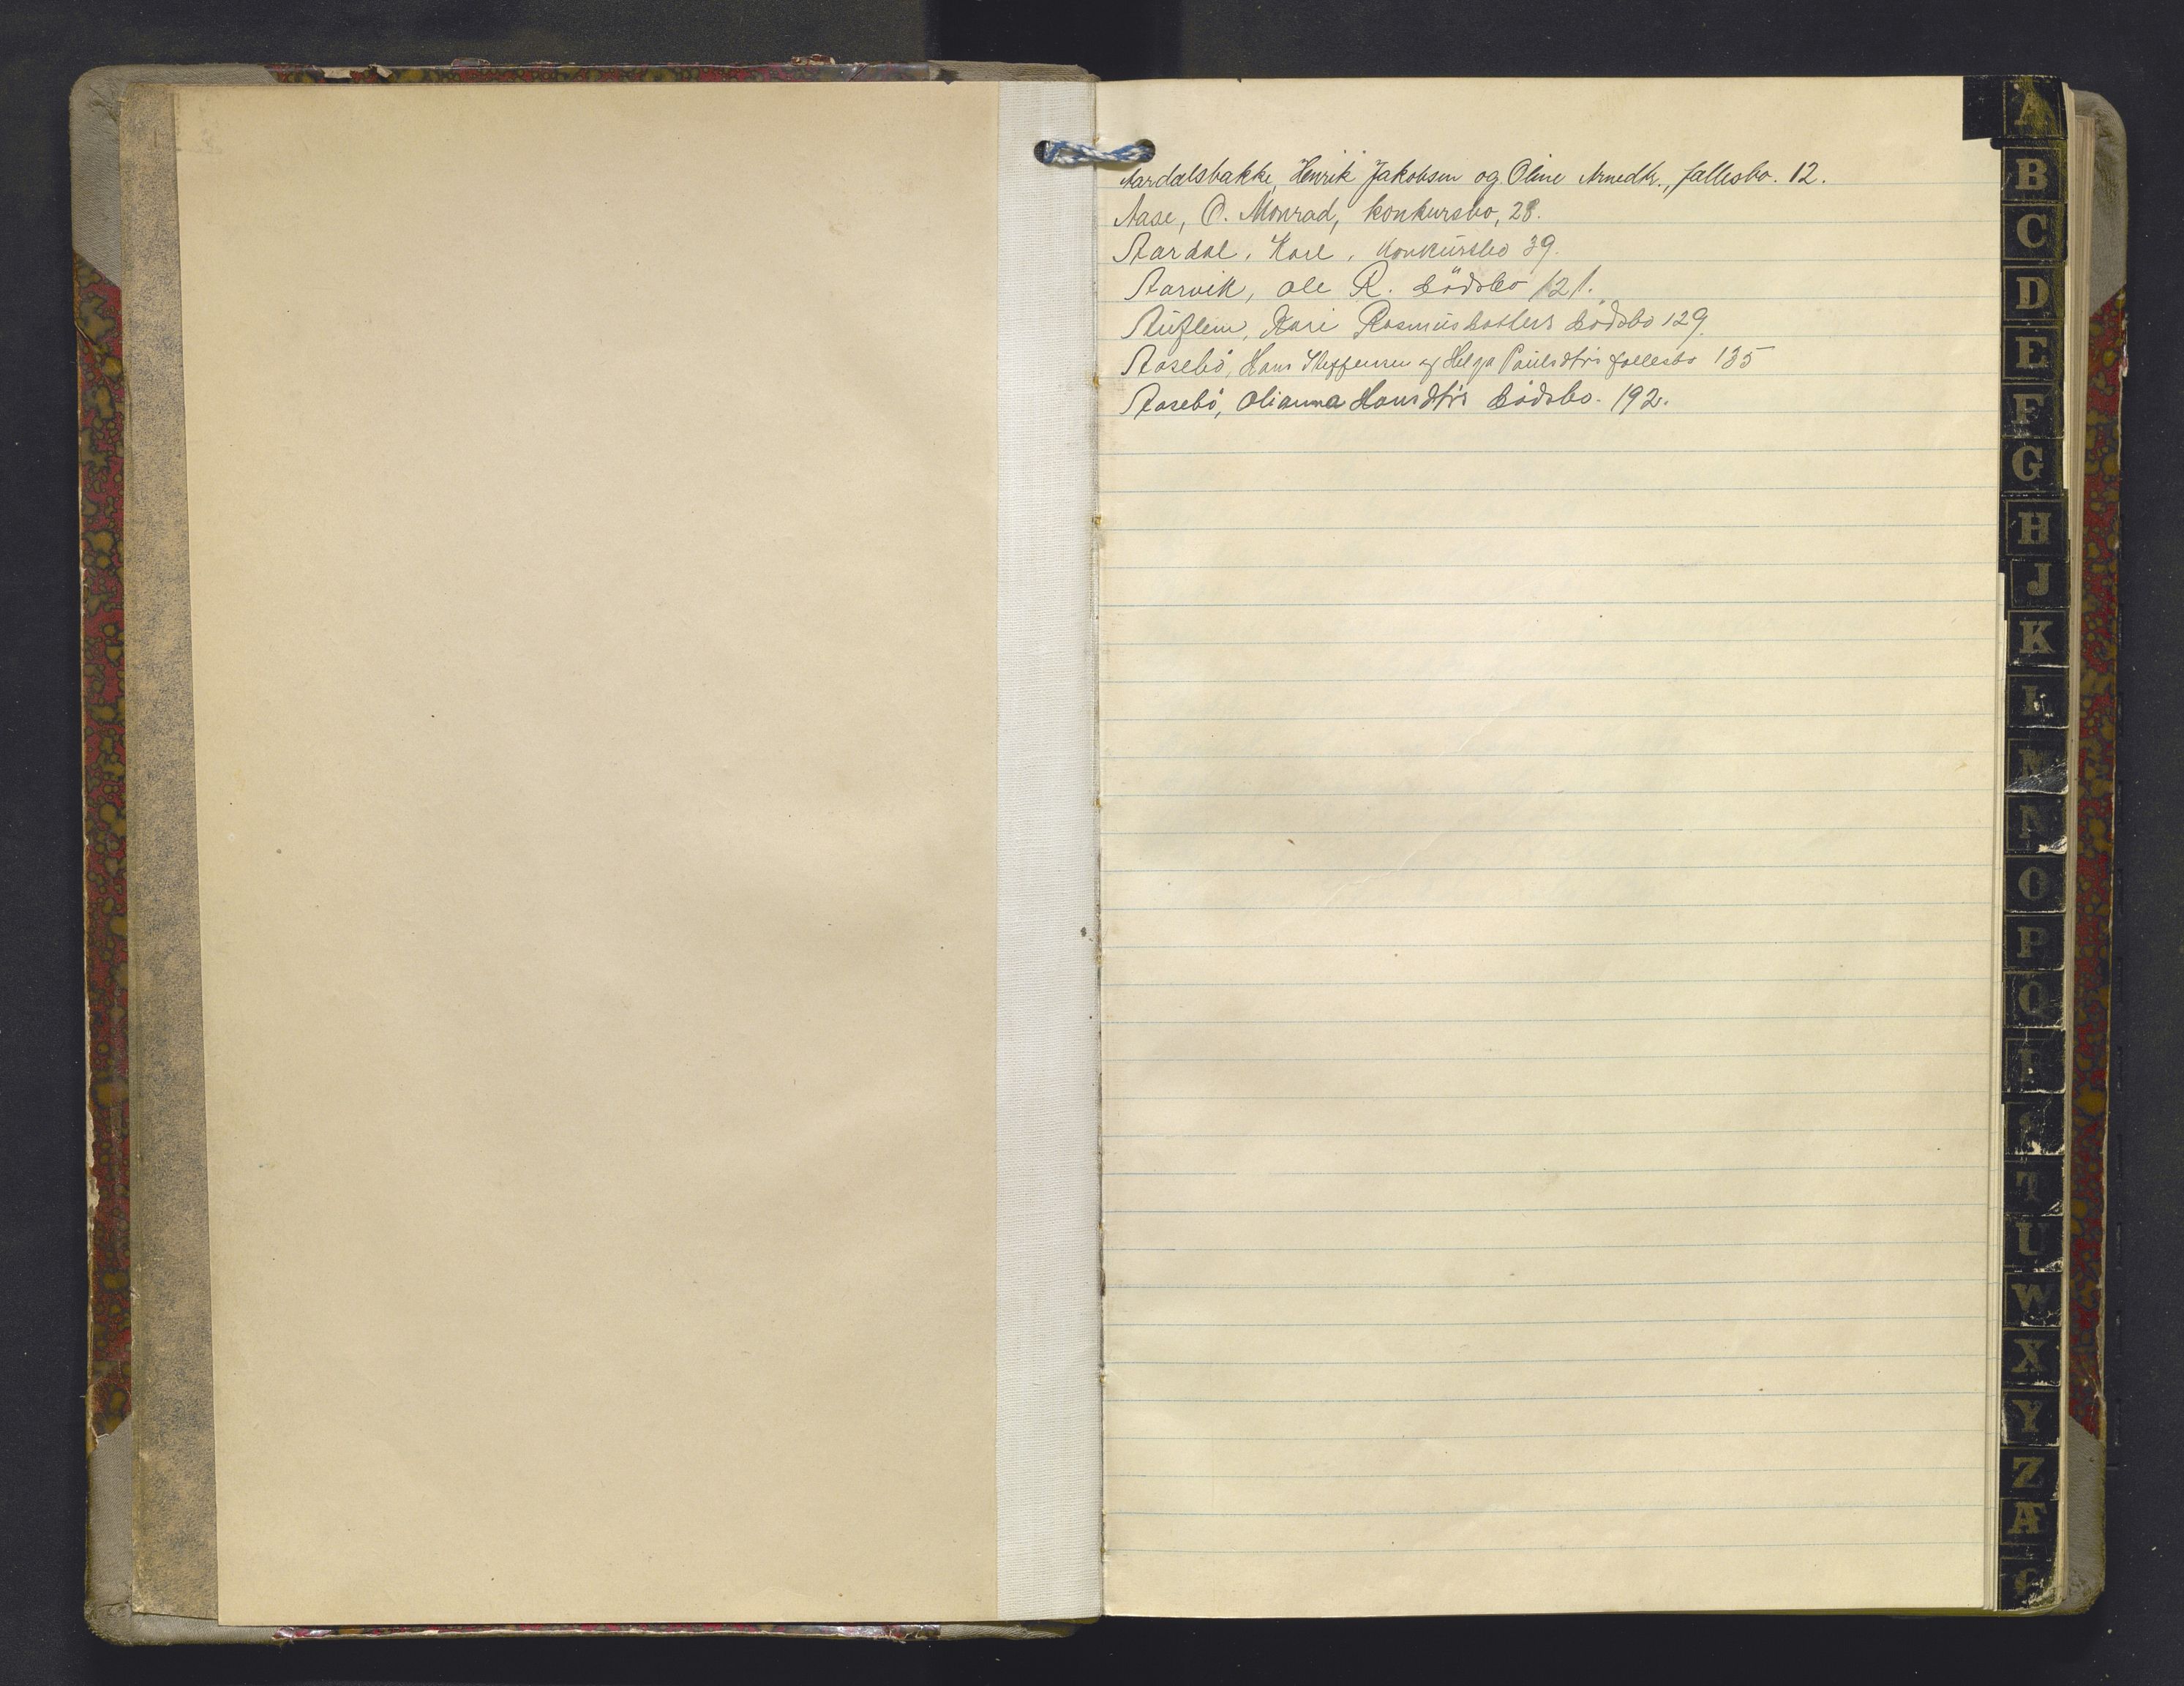 Aardalsbakke, Henrik Jakobsen og Oline Arnedtr., fællesbo. 12.
Aase, O. Monrad, konkursbo, 28.
Aardal, Karl, konkursbo 39.
Aarvik, Ole R. dödsbo 121.
Auflem, Kari Rasmusdatters dödsbo 129.
Aasebö, Hans Steffensen og Helga Paulsdtrs fællesbo 135
Aasebö, Olianna Hansdtrs dödsbo. 192.
A
B
C
D
E
F
G
H
J
K
L
M
N
O
P
Q
R
T
U
W
X
Y
Z
Æ